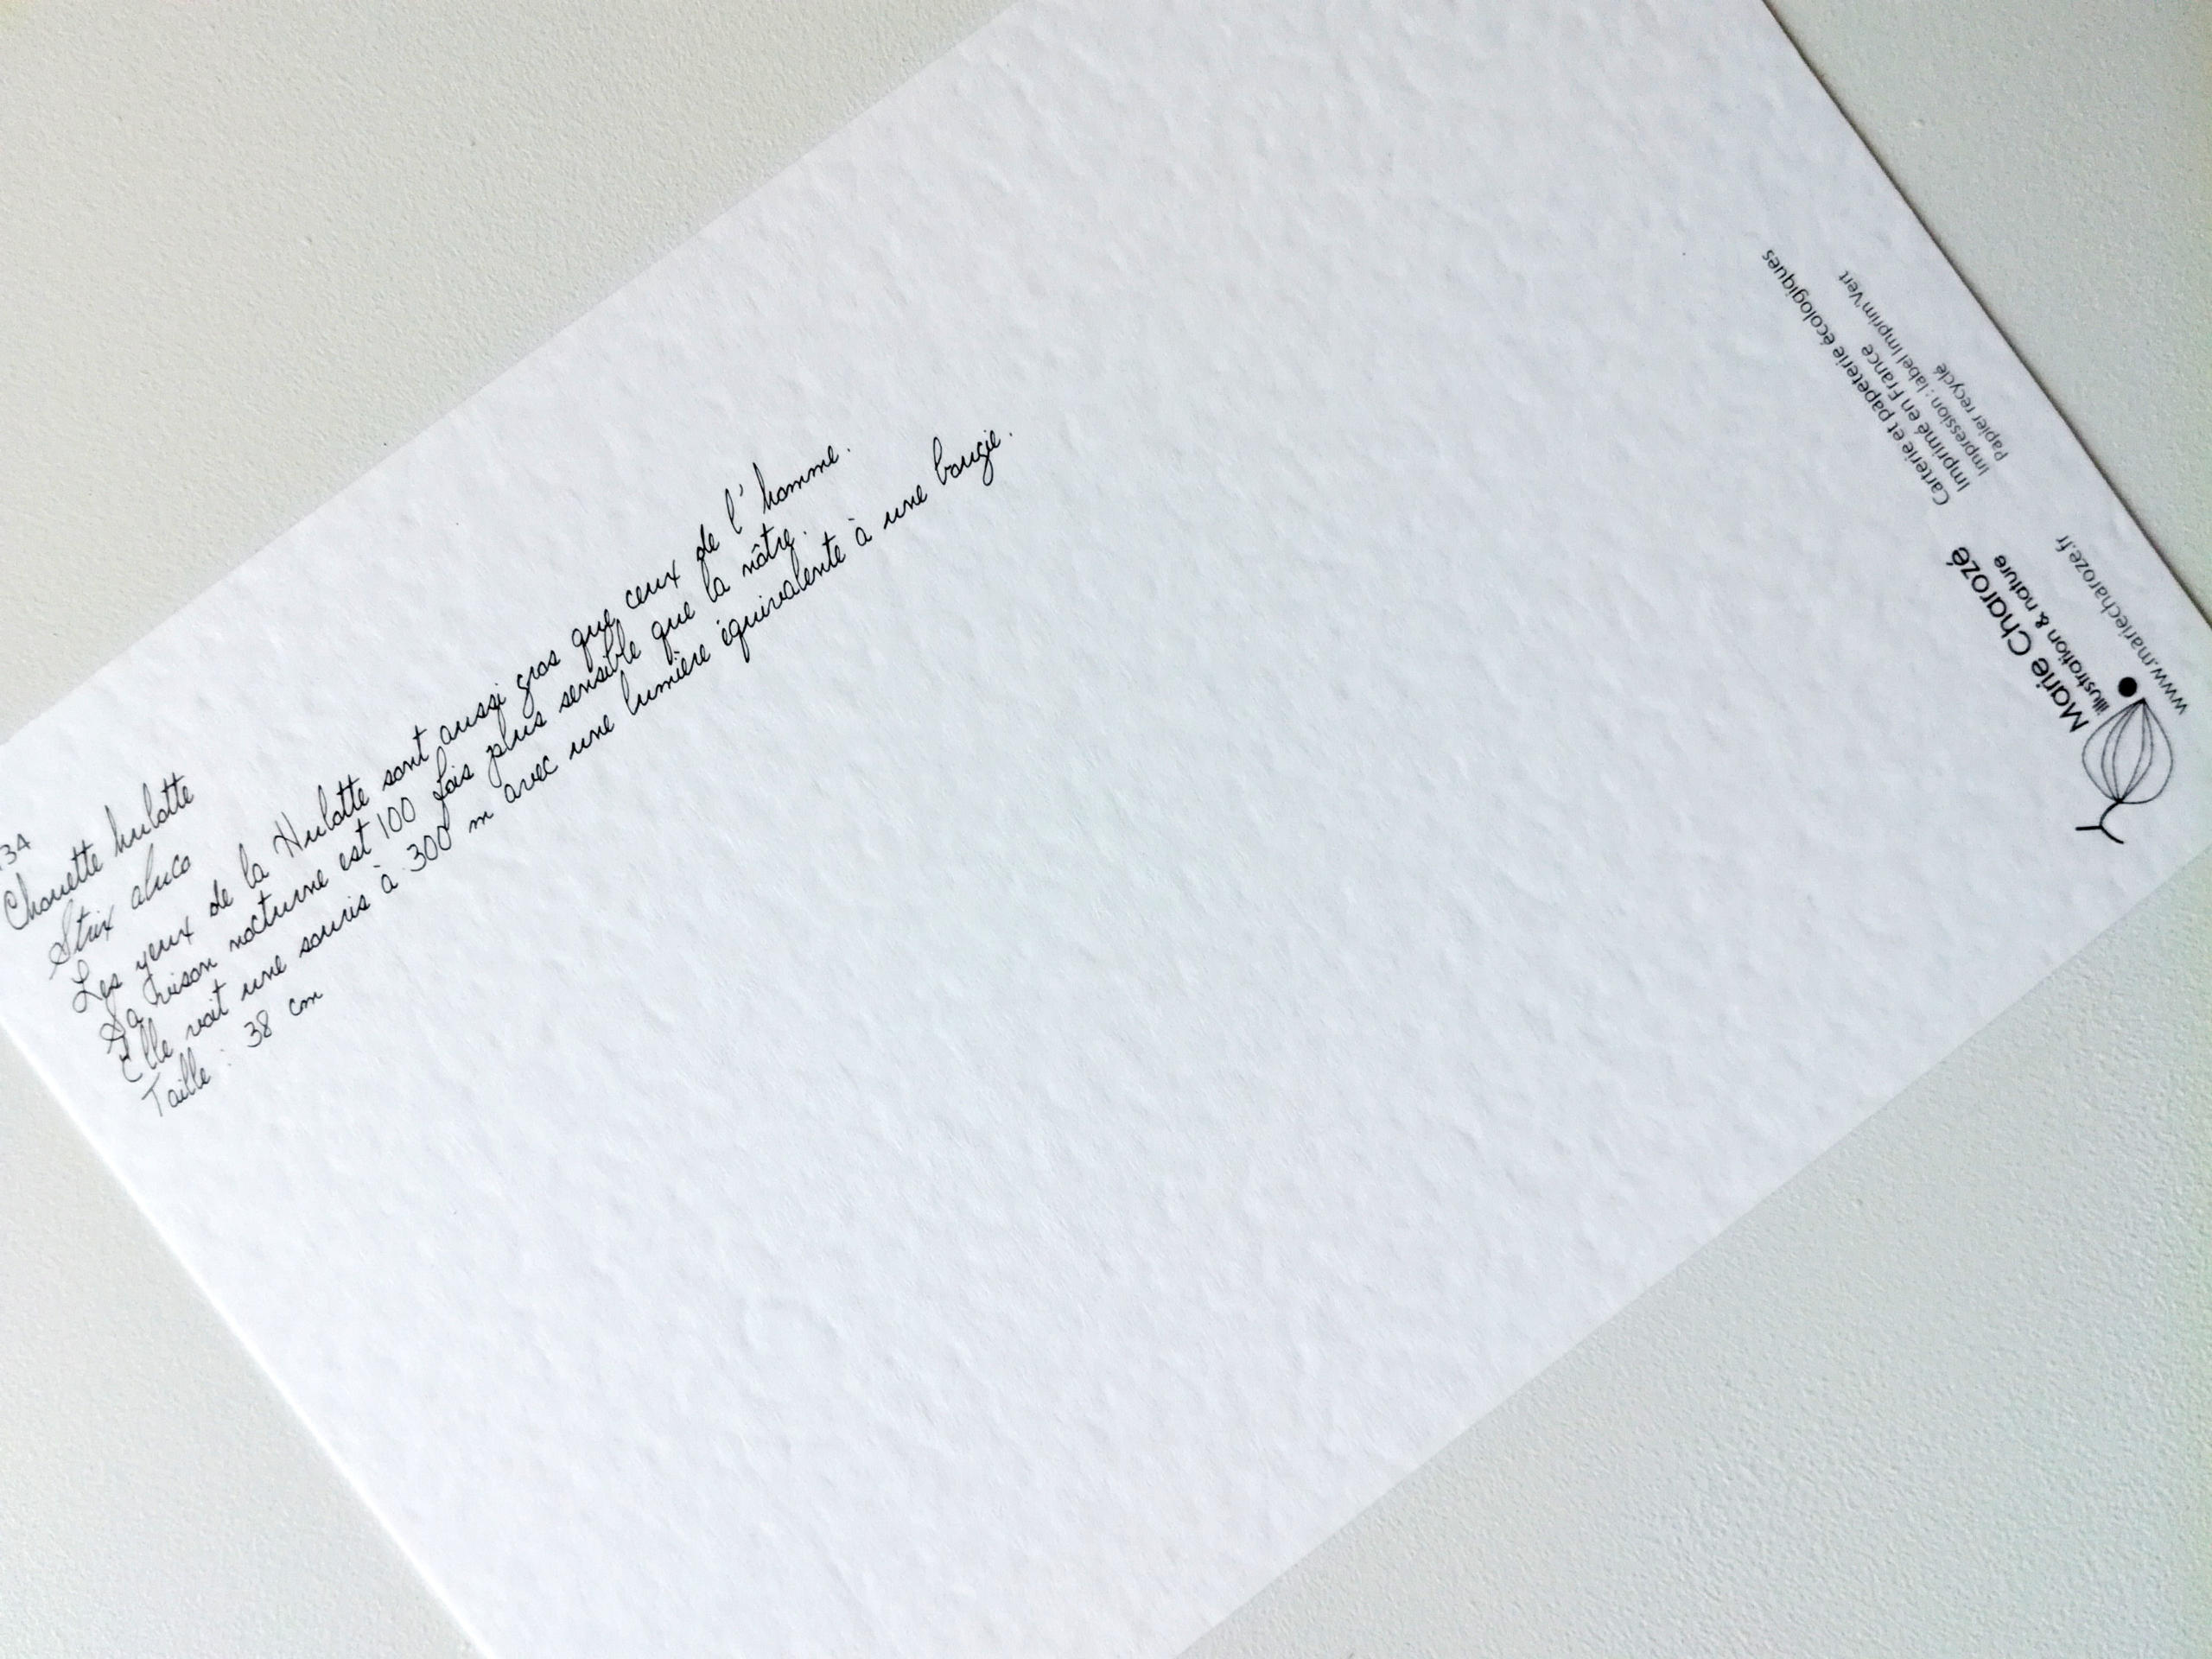 34
Chouette hulotte
Strix aluco
Les yeux de la Hulotte sont aussi gros que ceux de l'homme.
Sa vison nocturne est 100 fois plus sensible que la nôtre.
Elle voit une souris à 300 m avec une lumière équivalente à une bougie.
Taille : 38 cm
Marie Charozé
illustration & nature
www.mariecharoze.fr
Carterie et papeterie écologiques
Imprimé en France
Impression : label Imprim'Vert
Papier recyclé